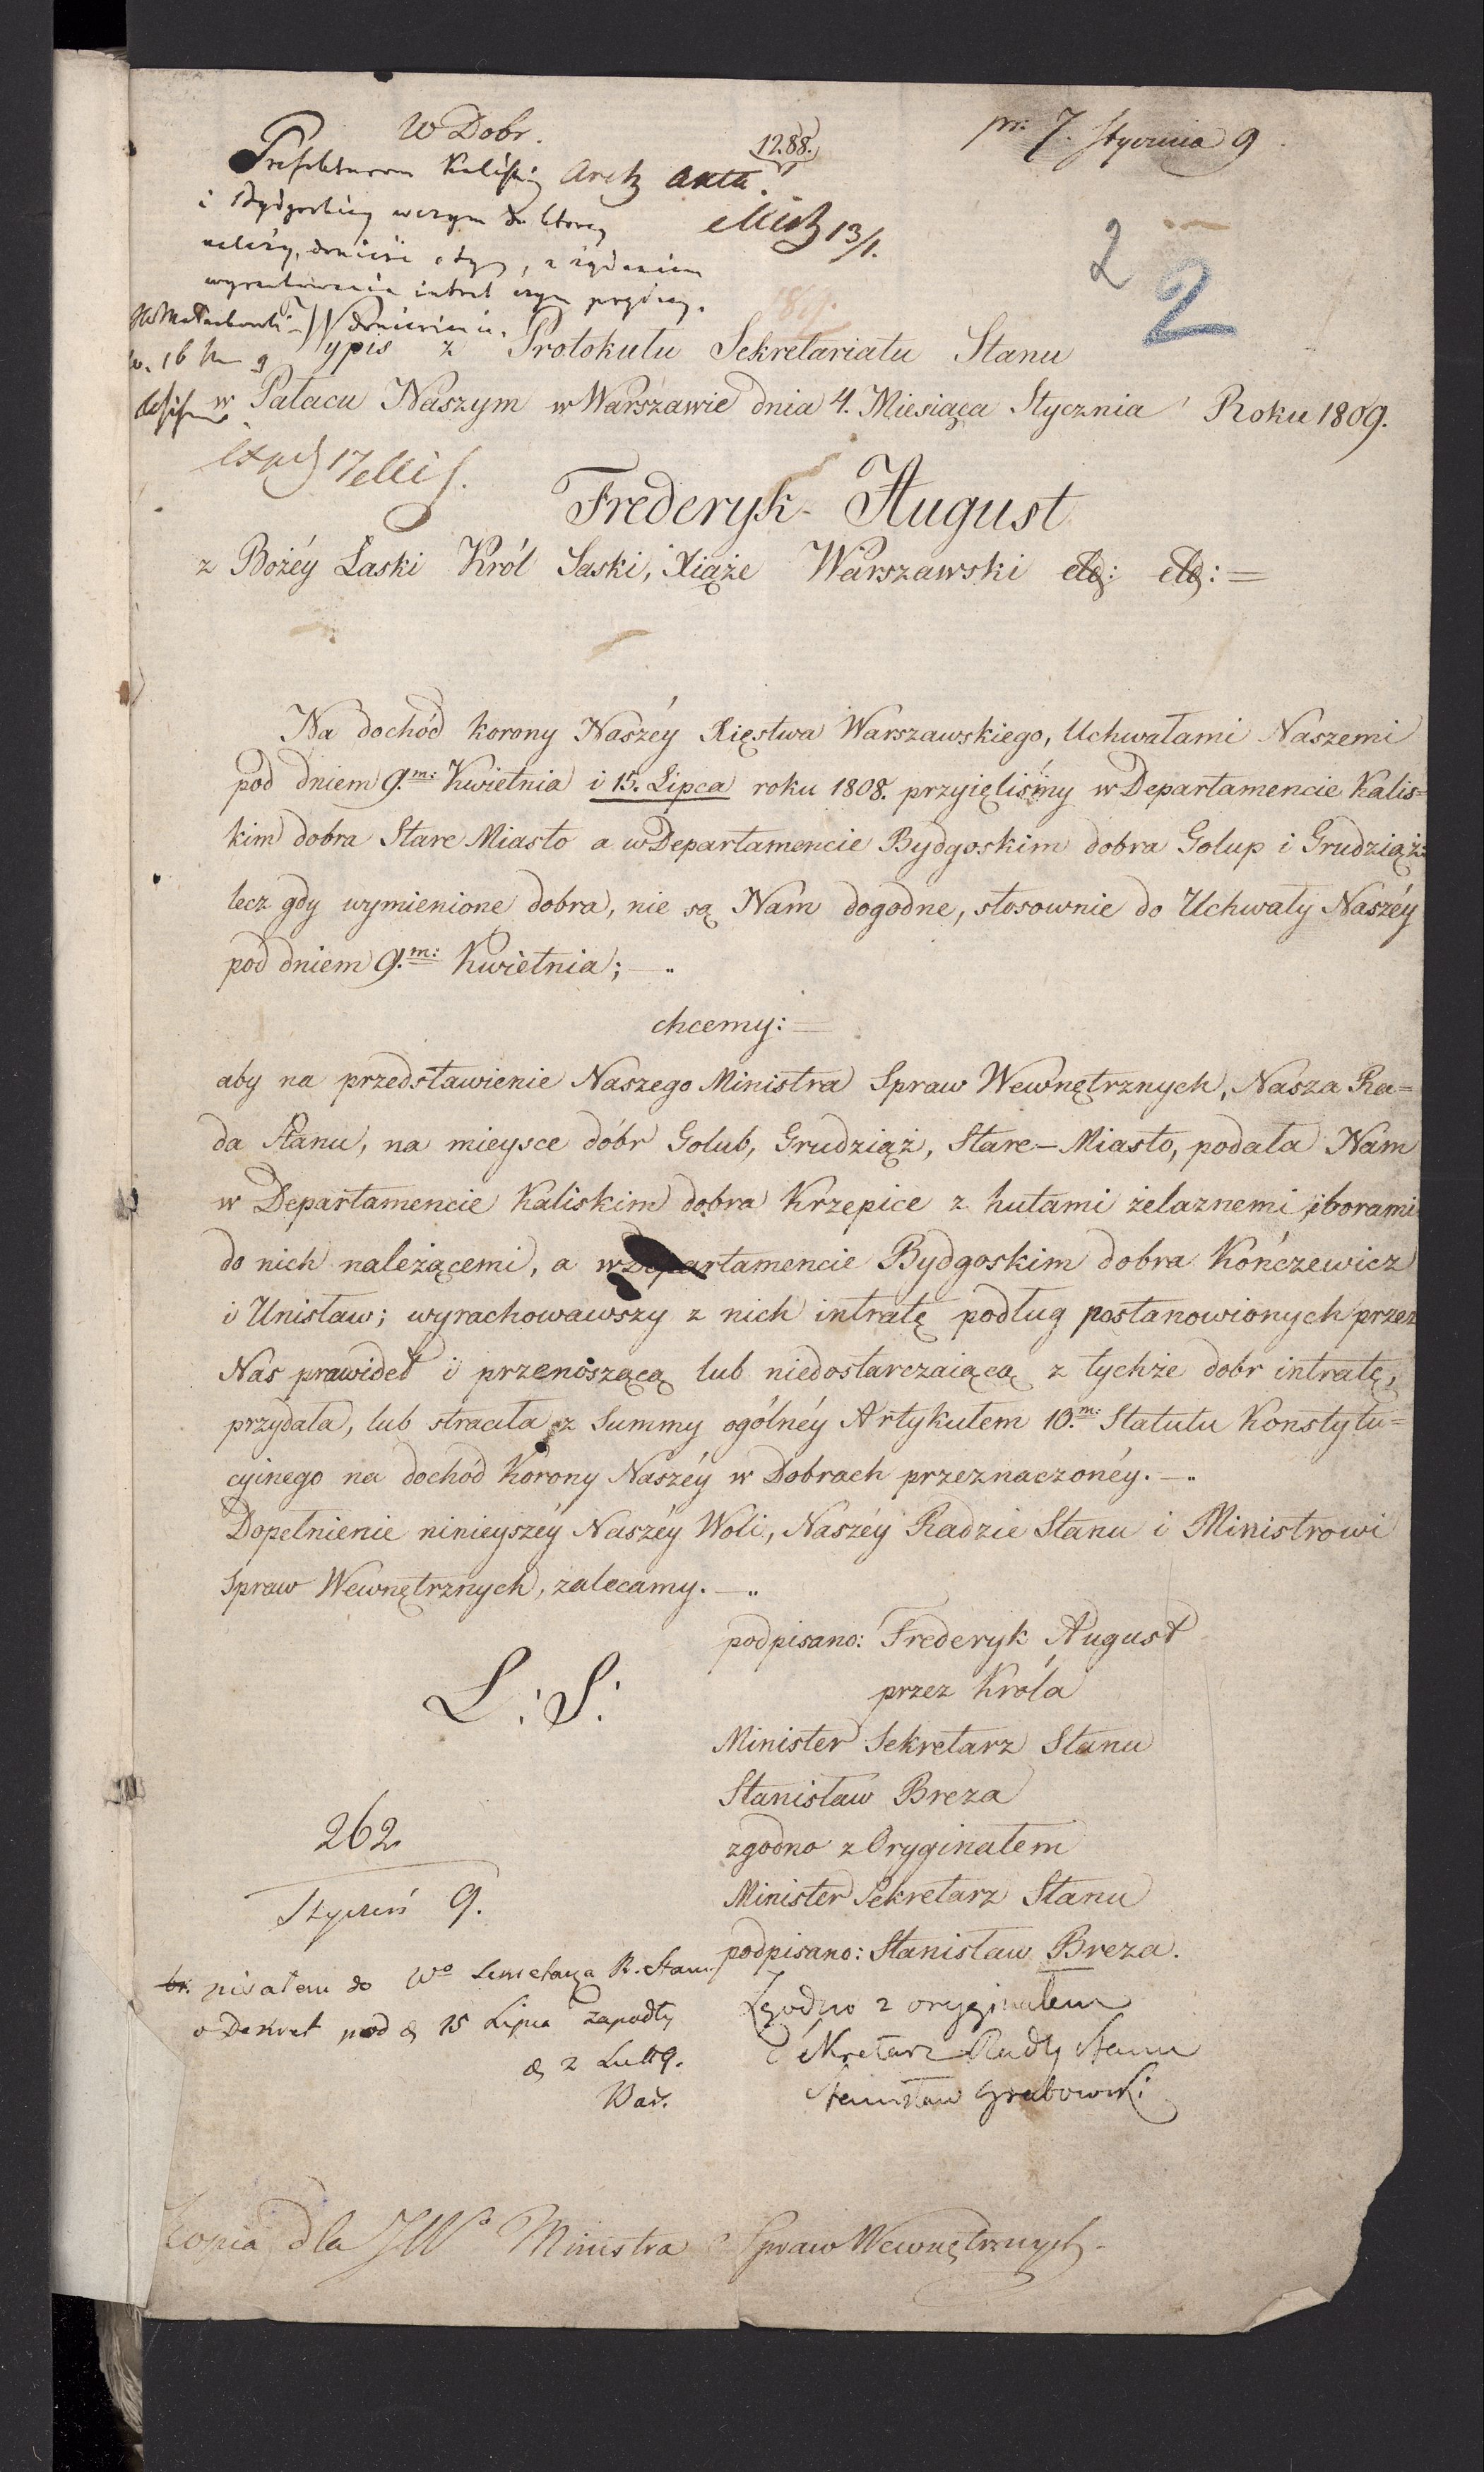 W Dobr.
pr. 7. Stycznia 9.
1288.
Prefekturom Kaliskiej
i Bydgoskiej w czym do ktorej
należy, donieść o tym, z żądaniem
wyrachowania intrat czym prędzej
doniesienia.
13/1.
2
2
Wypis z Protokułu Sekretariatu Stanu
w Pałacu Naszym w Warszawie dnia 4. Miesiąca Stycznia Roku 1809.
Frederyk August
z Bożéy Łaski Król Saski, Xiąże Warszawski etc: etc: =
Na dochód korony Naszéy Xięstwa Warszawskiego, Uchwałami Naszemi
pod dniem 9.m: Kwietnia i 15. Lipca roku 1808. przyięliśmy w Departamencie Kalis=
kim dobra Stare Miasto a w Departamencie Bydgoskim dobra Golup i Grudziąż:
lecz gdy wymienione dobra, nie są Nam dogodne, stosownie do Uchwały Naszéy
pod dniem 9.m: Kwietnia; — ..
chcemy: =
aby na przedstawienie Naszego Ministra Spraw Wewnętrznych, Nasza Ra=
da Stanu, na mieysce dóbr Golub, Grudziąż, Stare-Miasto, podała Nam
w Departamencie Kaliskim dobra Krzepice z hutami żelaznemi i borami
do nich należącemi, a w Departamencie Bydgoskim dobra Kończewicz
i Unisław; wyrachowawszy z nich intratę podług postanowionych przez
Nas prawideł i przenoszącą lub niedostarczaiącą z tychże dobr intratę,
przydała, lub straciła z Summy ogólnéy Artykułem 10.m: Statutu Konstytu=
cyinego na dochód Korony Naszéy w Dobrach przeznaczonéy. — ..
Dopełnienie ninieyszéy Naszéy Woli, Naszéy Radzie Stanu i Ministrowi
Spraw Wewnętrznych, zalecamy. — ..
podpisano: Frederyk August
L: S:
przez Króla
Minister Sekretarz Stanu
Stanisław Breza
262
zgodno z Oryginałem
Styczeń 9.
Minister Sekretarz Stanu
podpisano: Stanisław Breza.
pisałem do Wo Sekretarza R. Stanu
o Dekret pod d 15 Lipca zapadły
d 2 Lut 9.
Zgodno z oryginałem
Sekretarz Rady Stanu
Stanisław Grabowski
Kopia dla JWo Ministra Spraw Wewnętrznych